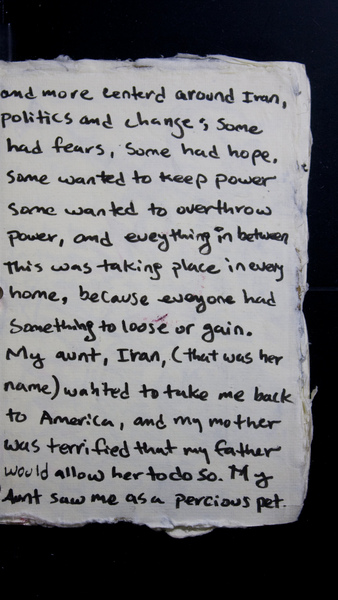 and more centerd around Iran,
politics and changes some
had fears, some had hope.
some wanted to keep power
some wanted to overthrow
power, and eveything in between
this was taking place in every
home, because eveyone had
something to loose or gain.
My aunt, Iran, (that was her
name) wanted to take me back
to America, and my mother
was terrified that my father
would allow her to do so. My
Aunt saw me as a percious pet.